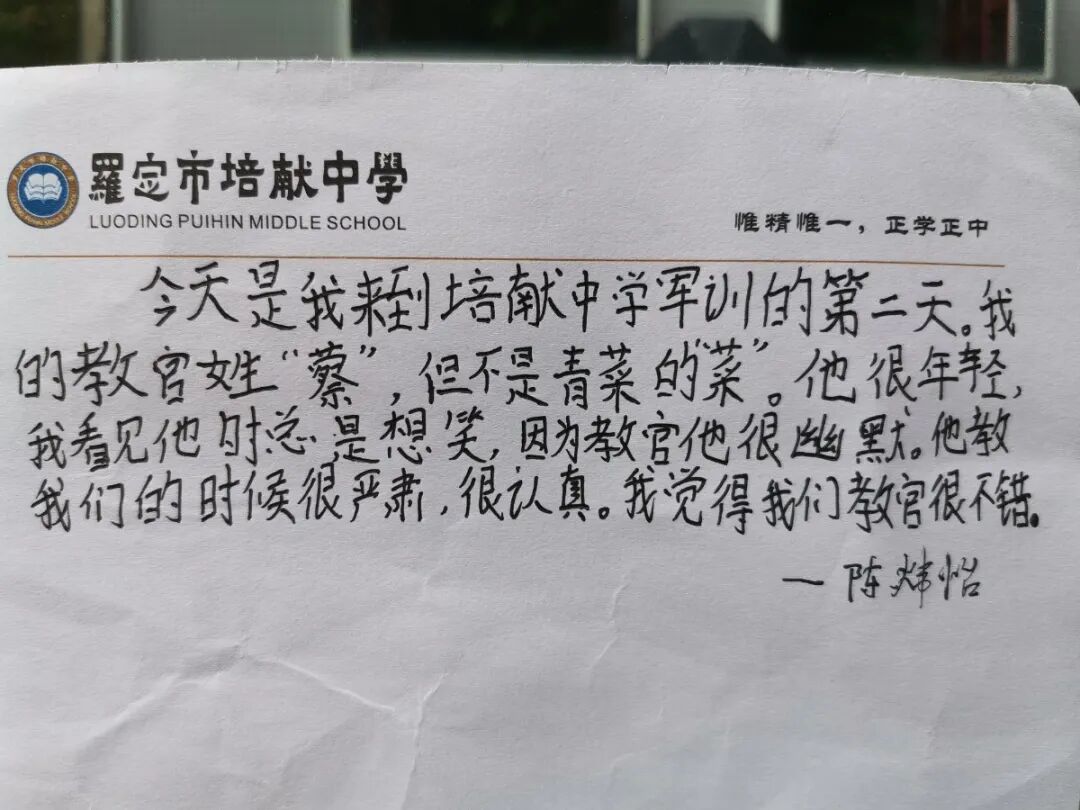 羅定市培献中學
LUODING PUIHIN MIDDLE SCHOOL
惟精惟一，正学正中
今天是我来到培献中学军训的第二天。我
的教官姓“蔡”，但不是青菜的“菜”。他很年轻，
我看见他时总是想笑，因为教官他很幽默。他教
我们的时候很严肃，很认真。我觉得我们教官很不错。
—陈炜怡